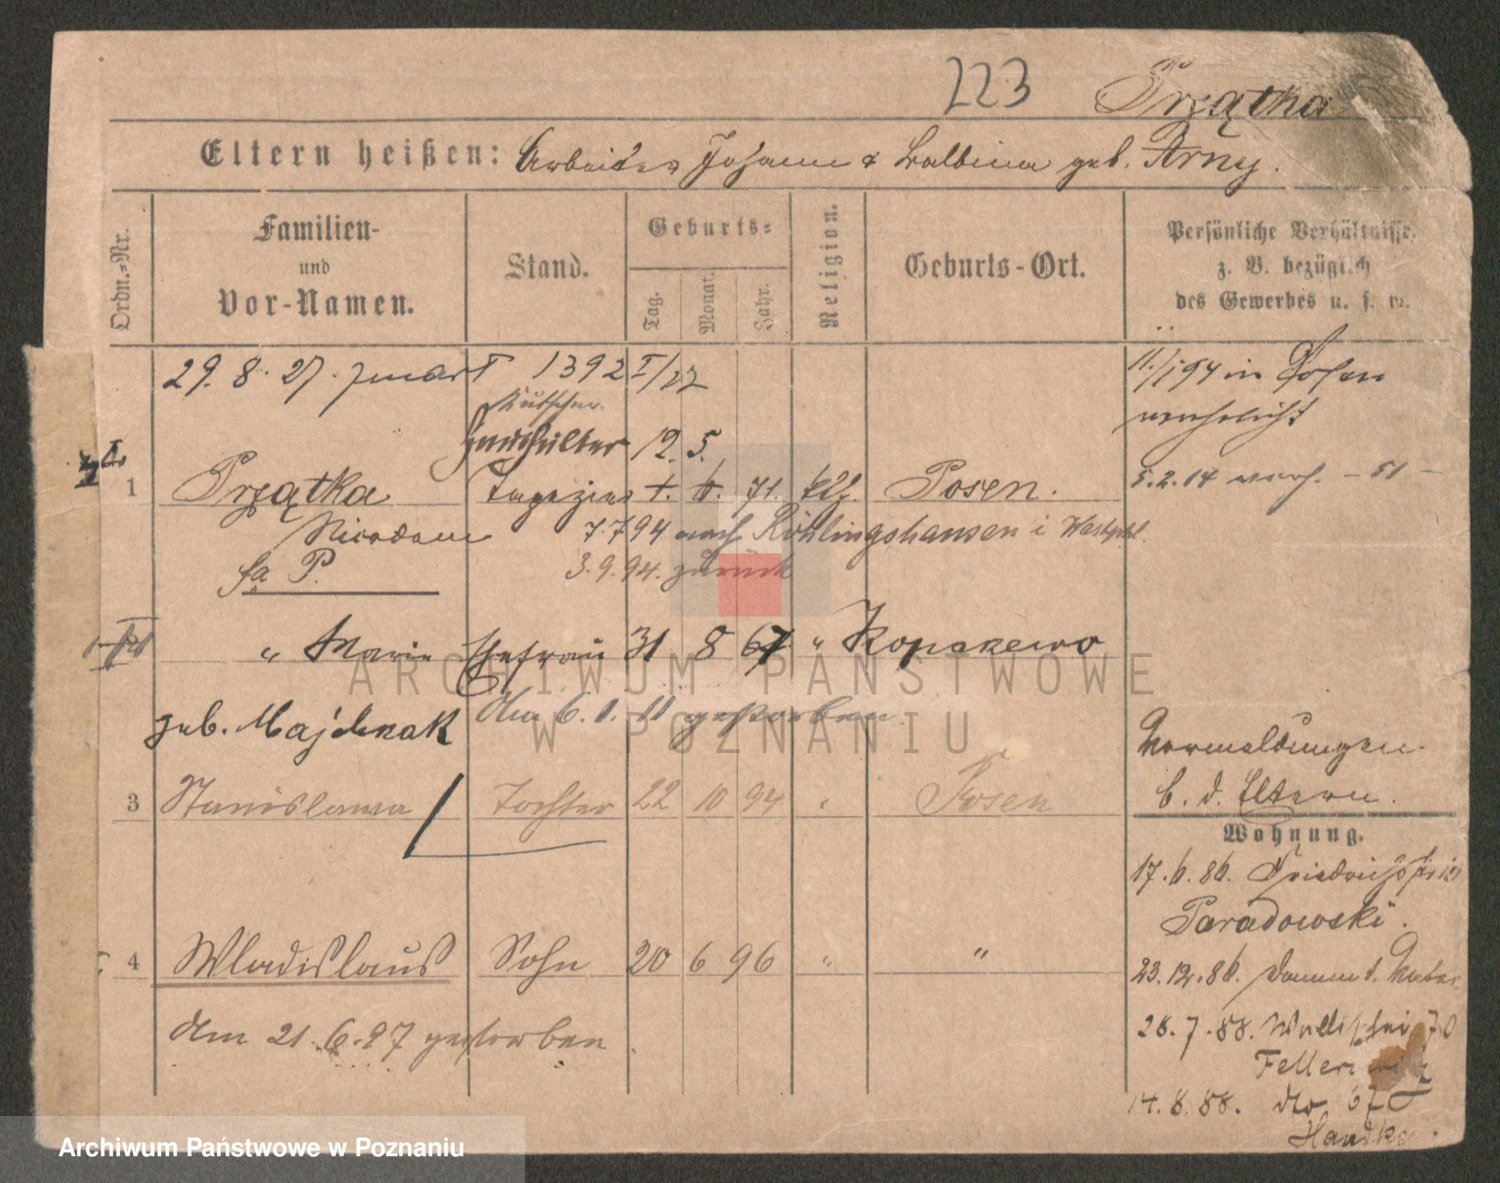 223 Prządka
Eltern heißen: Arbeiter Johann & Balbina geb. Arny.
Ordn.-Nr.
Familien-
und
Vor-Namen.
Stand.
Geburts-
Tag.
Monat.
Jahr.
Religion.
Geburts-Ort.
Persönliche Verhältnisse,
z. B. bezüglich
des Gewerbes u. s. w.
29. 8. 27. 1392 I/27
11/1 94 in Posen
verehelicht
Kutscher.
Haushälter 12. 5.
1 Prządka Tapezier t. 6. 71. kth. Posen.
5.2.14 verh. – 51 –
Nicodem 7.7 94 nach Röhlingshausen i Westphl.
fa P. 3.9.94. zurück
" Marie Ehefrau 31 8 67 " Konarzewo
geb. Majchrzak Am 6.1.11 gestorben.
3 Stanislawa Tochter 22 10 94 " Posen
4 Wladislaus Sohn 20 6 96 " "
Am 21.6.97 gestorben
Vormeldungen
b. d. Eltern.
Wohnung.
17.6.86. Friedrichstr
Paradowski.
23.12.86. Damm 1. Vater
28.7.88. Wallischei 70
14.8.88. dto 67
Handke.
ARCHIWUM PAŃSTWOWE
W POZNANIU
Archiwum Państwowe w Poznaniu